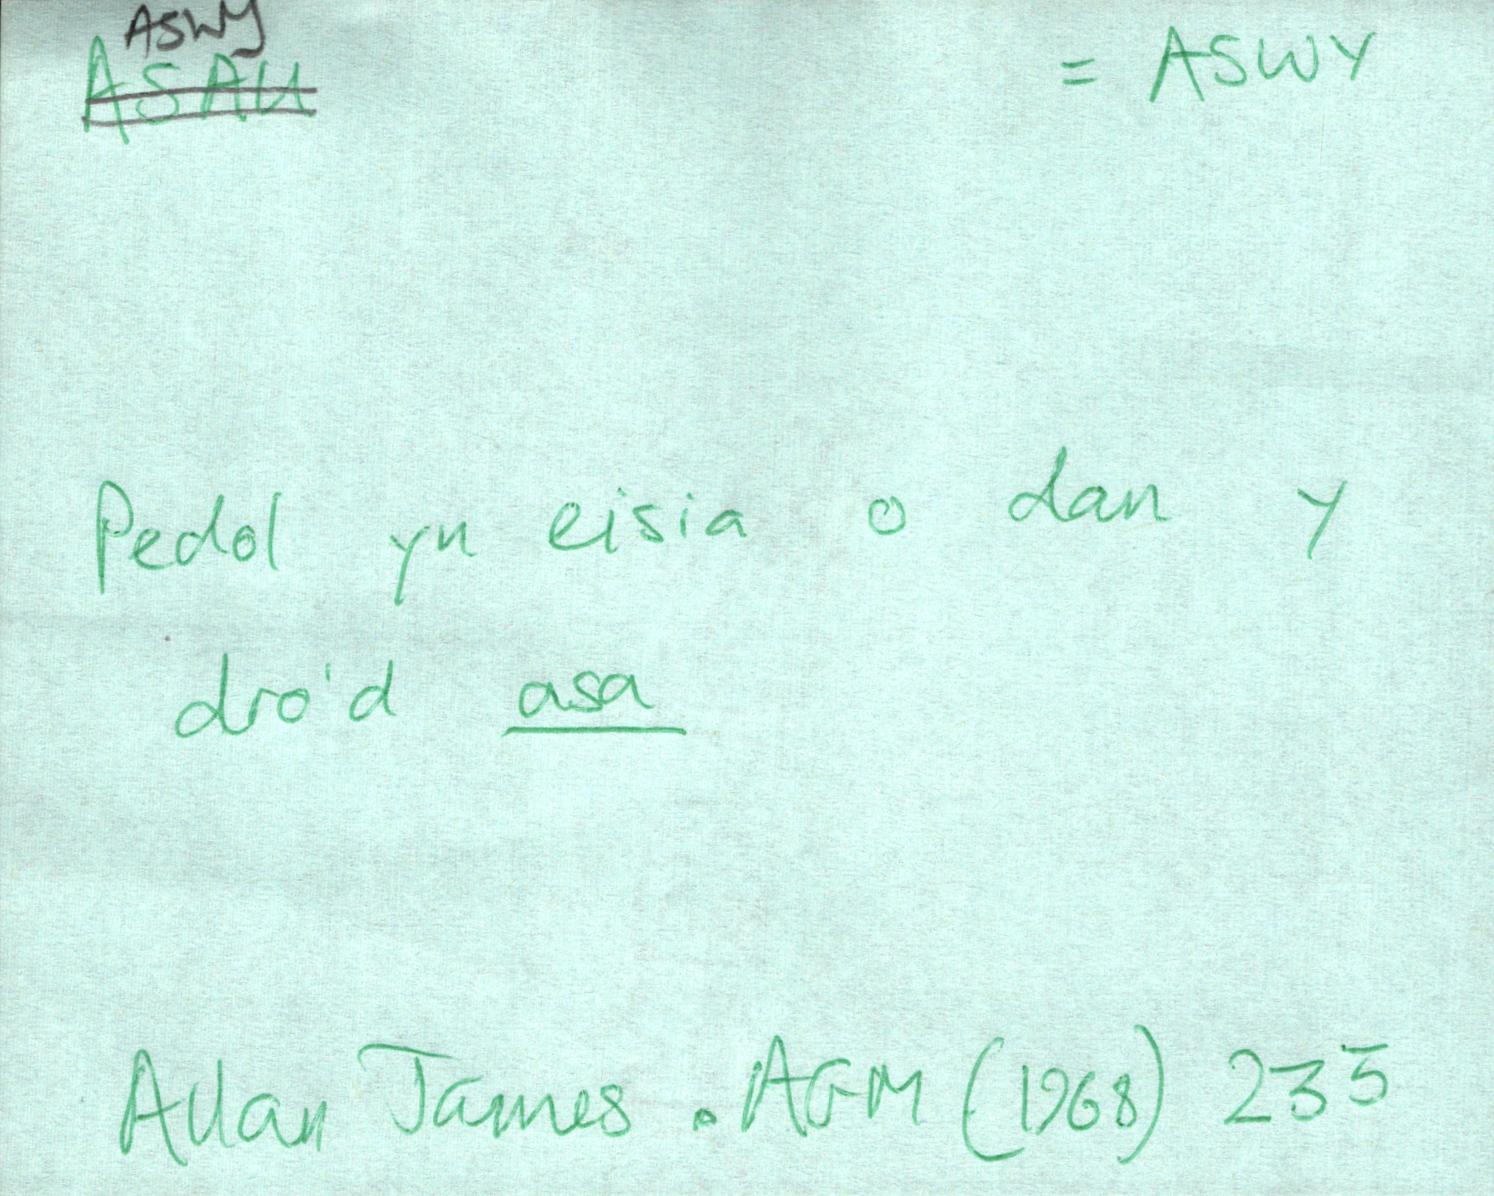 ASWY
ASAU = ASWY
Pedol yn eisia o dan y
dro'd asa
Allan James. AGM (1968) 235